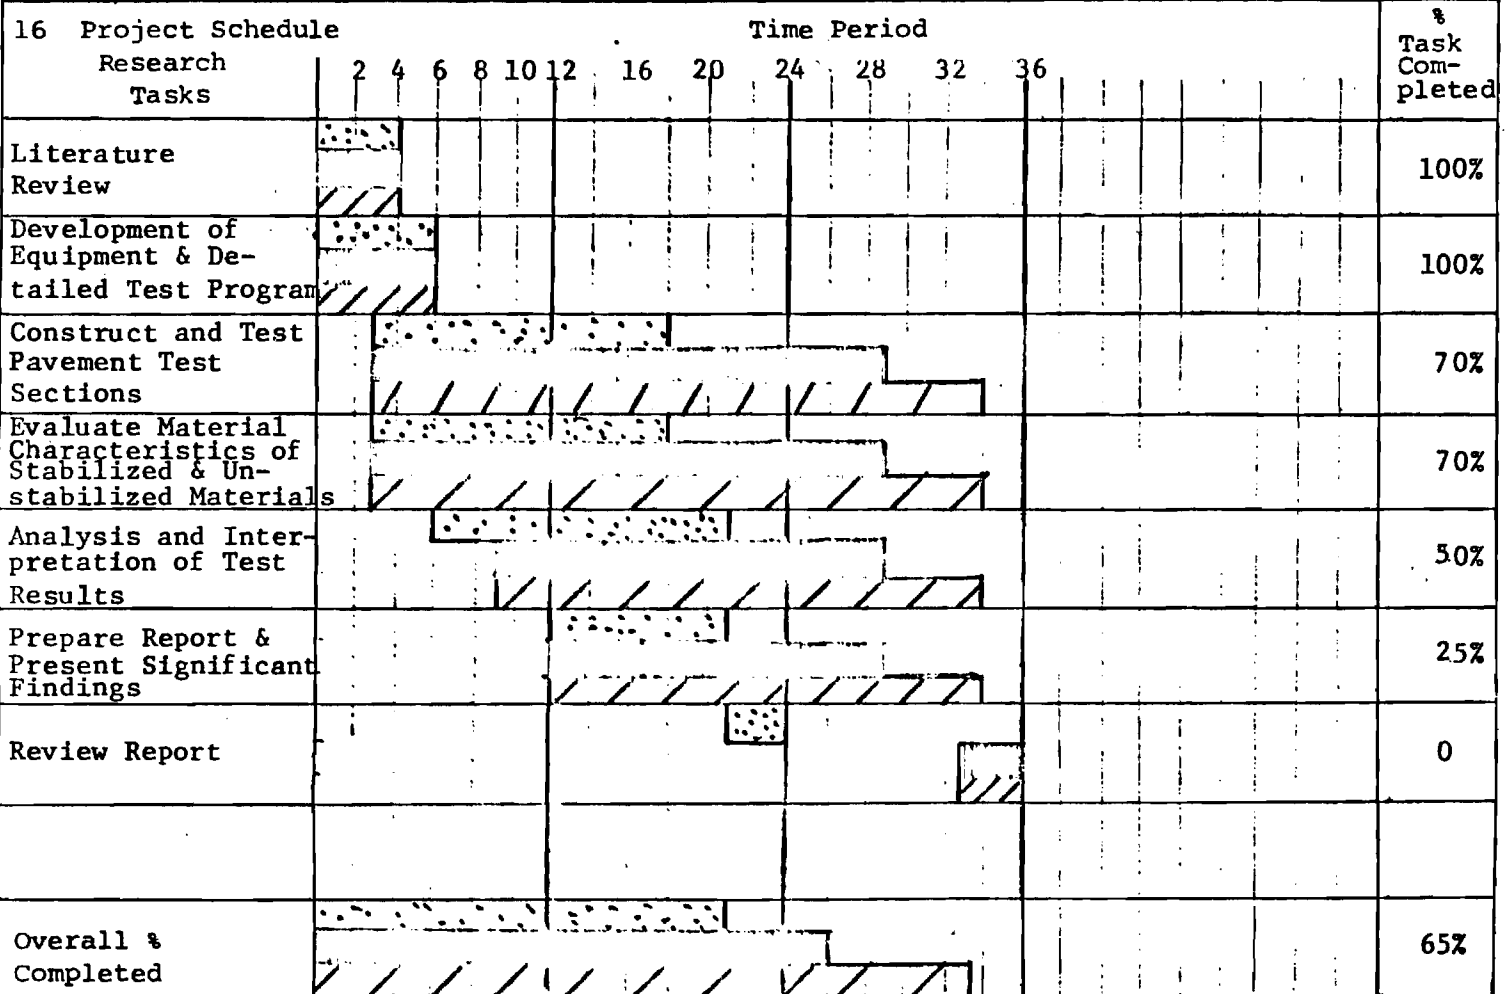 16 Project Schedule
Research
Tasks
Time Period
2 4 6 8 10 12 16 20 24 28 32 36
%
Task
Com-
pleted
Literature
Review
100%
Development of
Equipment & De-
tailed Test Program
100%
Construct and Test
Pavement Test
Sections
70%
Evaluate Material
Characteristics of
Stabilized & Un-
stabilized Materials
70%
Analysis and Inter-
pretation of Test
Results
50%
Prepare Report &
Present Significant
Findings
25%
Review Report
0
Overall %
Completed
65%